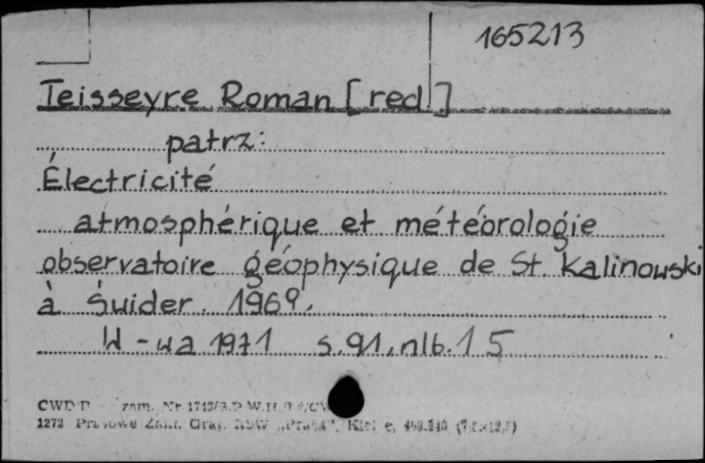 165213
Teisseyre Roman [red]
patrz:
Électricité
atmosphérique et météorologie
observatoire géophysique de St. Kalinowski
à Świder. 1969.
W-wa 1971 s.91, nlb. 15
zam. Nr 1713/
1272 Prasowe Zakł. Graf. RSW „Prasa",